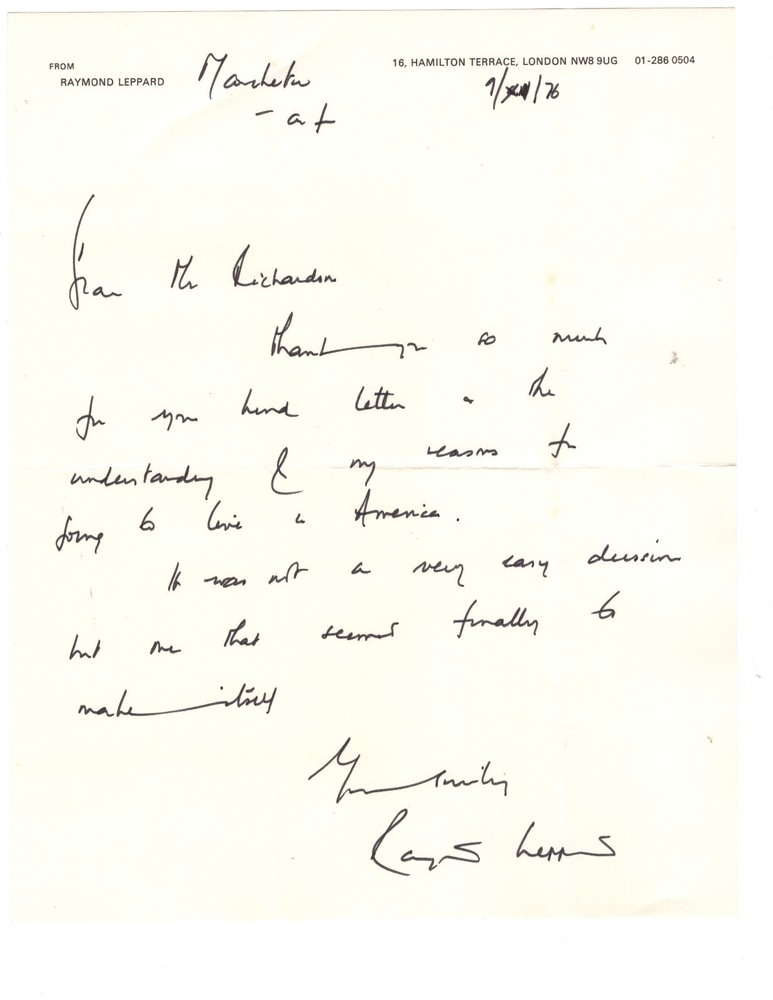 FROM
RAYMOND LEPPARD
16, HAMILTON TERRACE, LONDON NW8 9UG 01-286 0504
Manchester
9/XII/76
- as f
Dear Mr Richardson
Thank you so much
for your kind letter & the
understanding of my reasons for
going to live in America.
It was not a very easy decision
but one that seemed finally to
make itself
Yours sincerely
Raymond Leppard